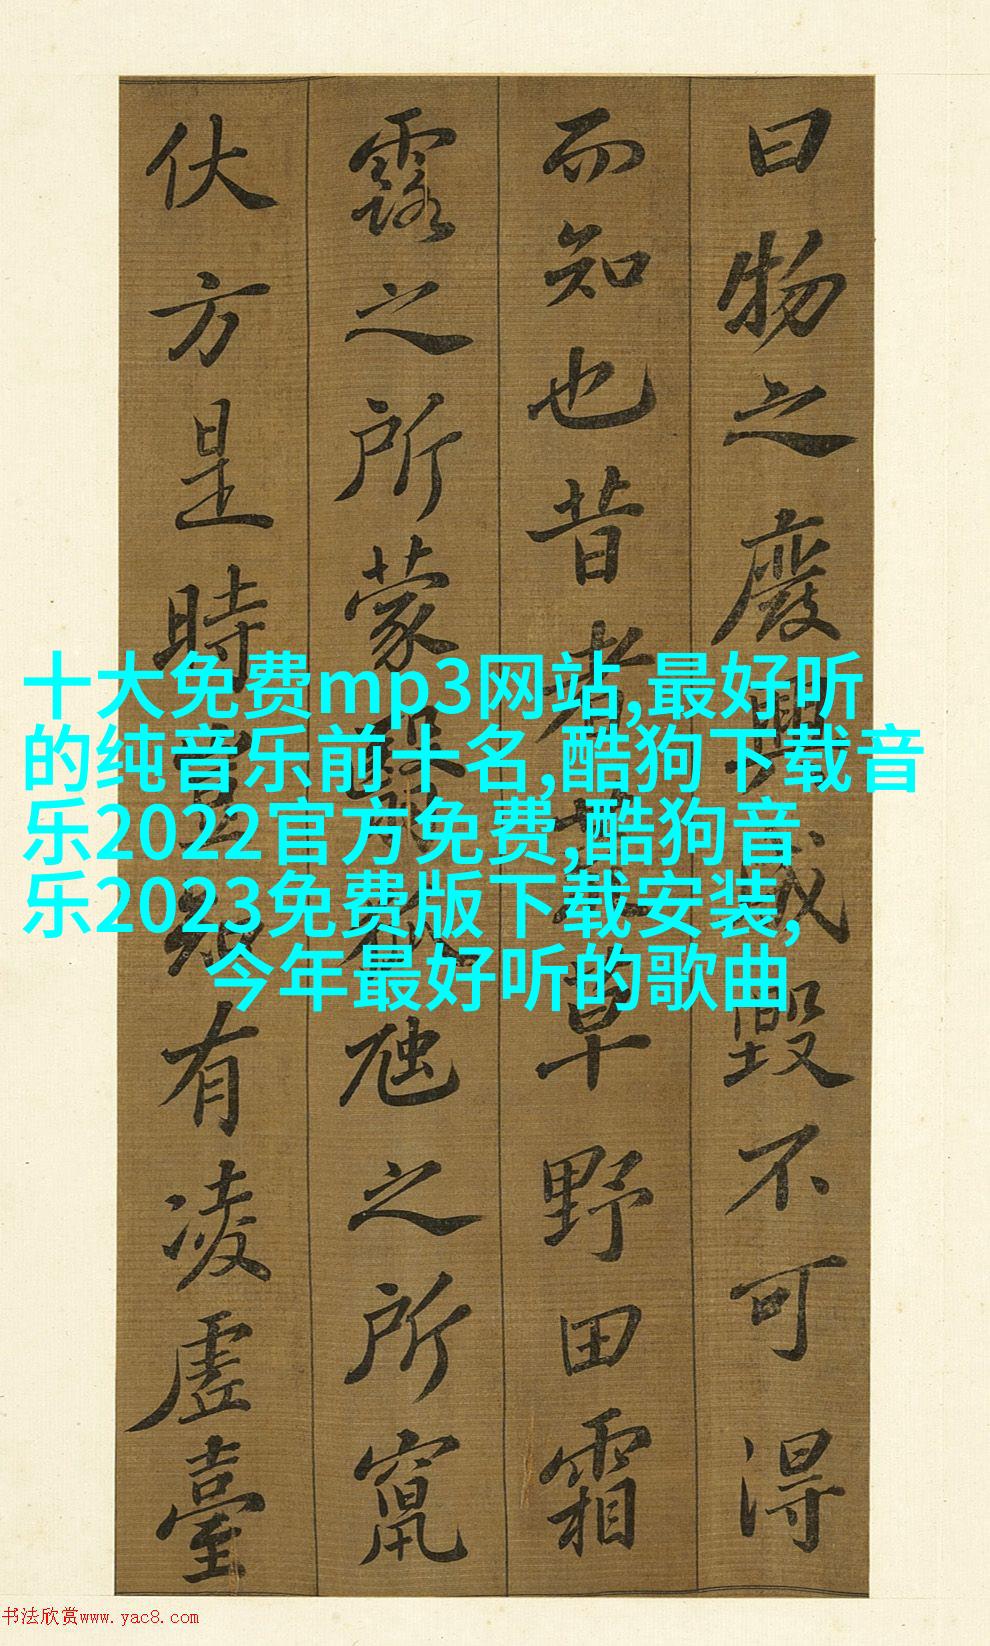 曰物之廢興成毀不可得
而知也昔者荒草野田霜
露之所蒙翳狐虺之所竄
伏方是時豈知有凌虛臺
十大免费mp3网站,最好听
的纯音乐前十名,酷狗下载音
乐2022官方免费,酷狗音
乐2023免费版下载安装,
今年最好听的歌曲
书法欣赏www.yac8.com